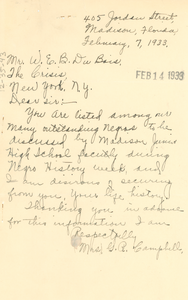 405 Jordan Street,
Madison, Florida
February, 7, 1933.
Mr. W. E. B. Du Bois,
The Crisis,
FEB 14 1933
New York, N.Y.
Dear Sir:-
You are listed among our
many outstanding Negros to be
discussed by Madison
High School faculty during
Negro History week, and
I am desirous of securing
from you, your life history.
Thanking you in advance
for this information I am
Respectfully
Mrs. Campbell.